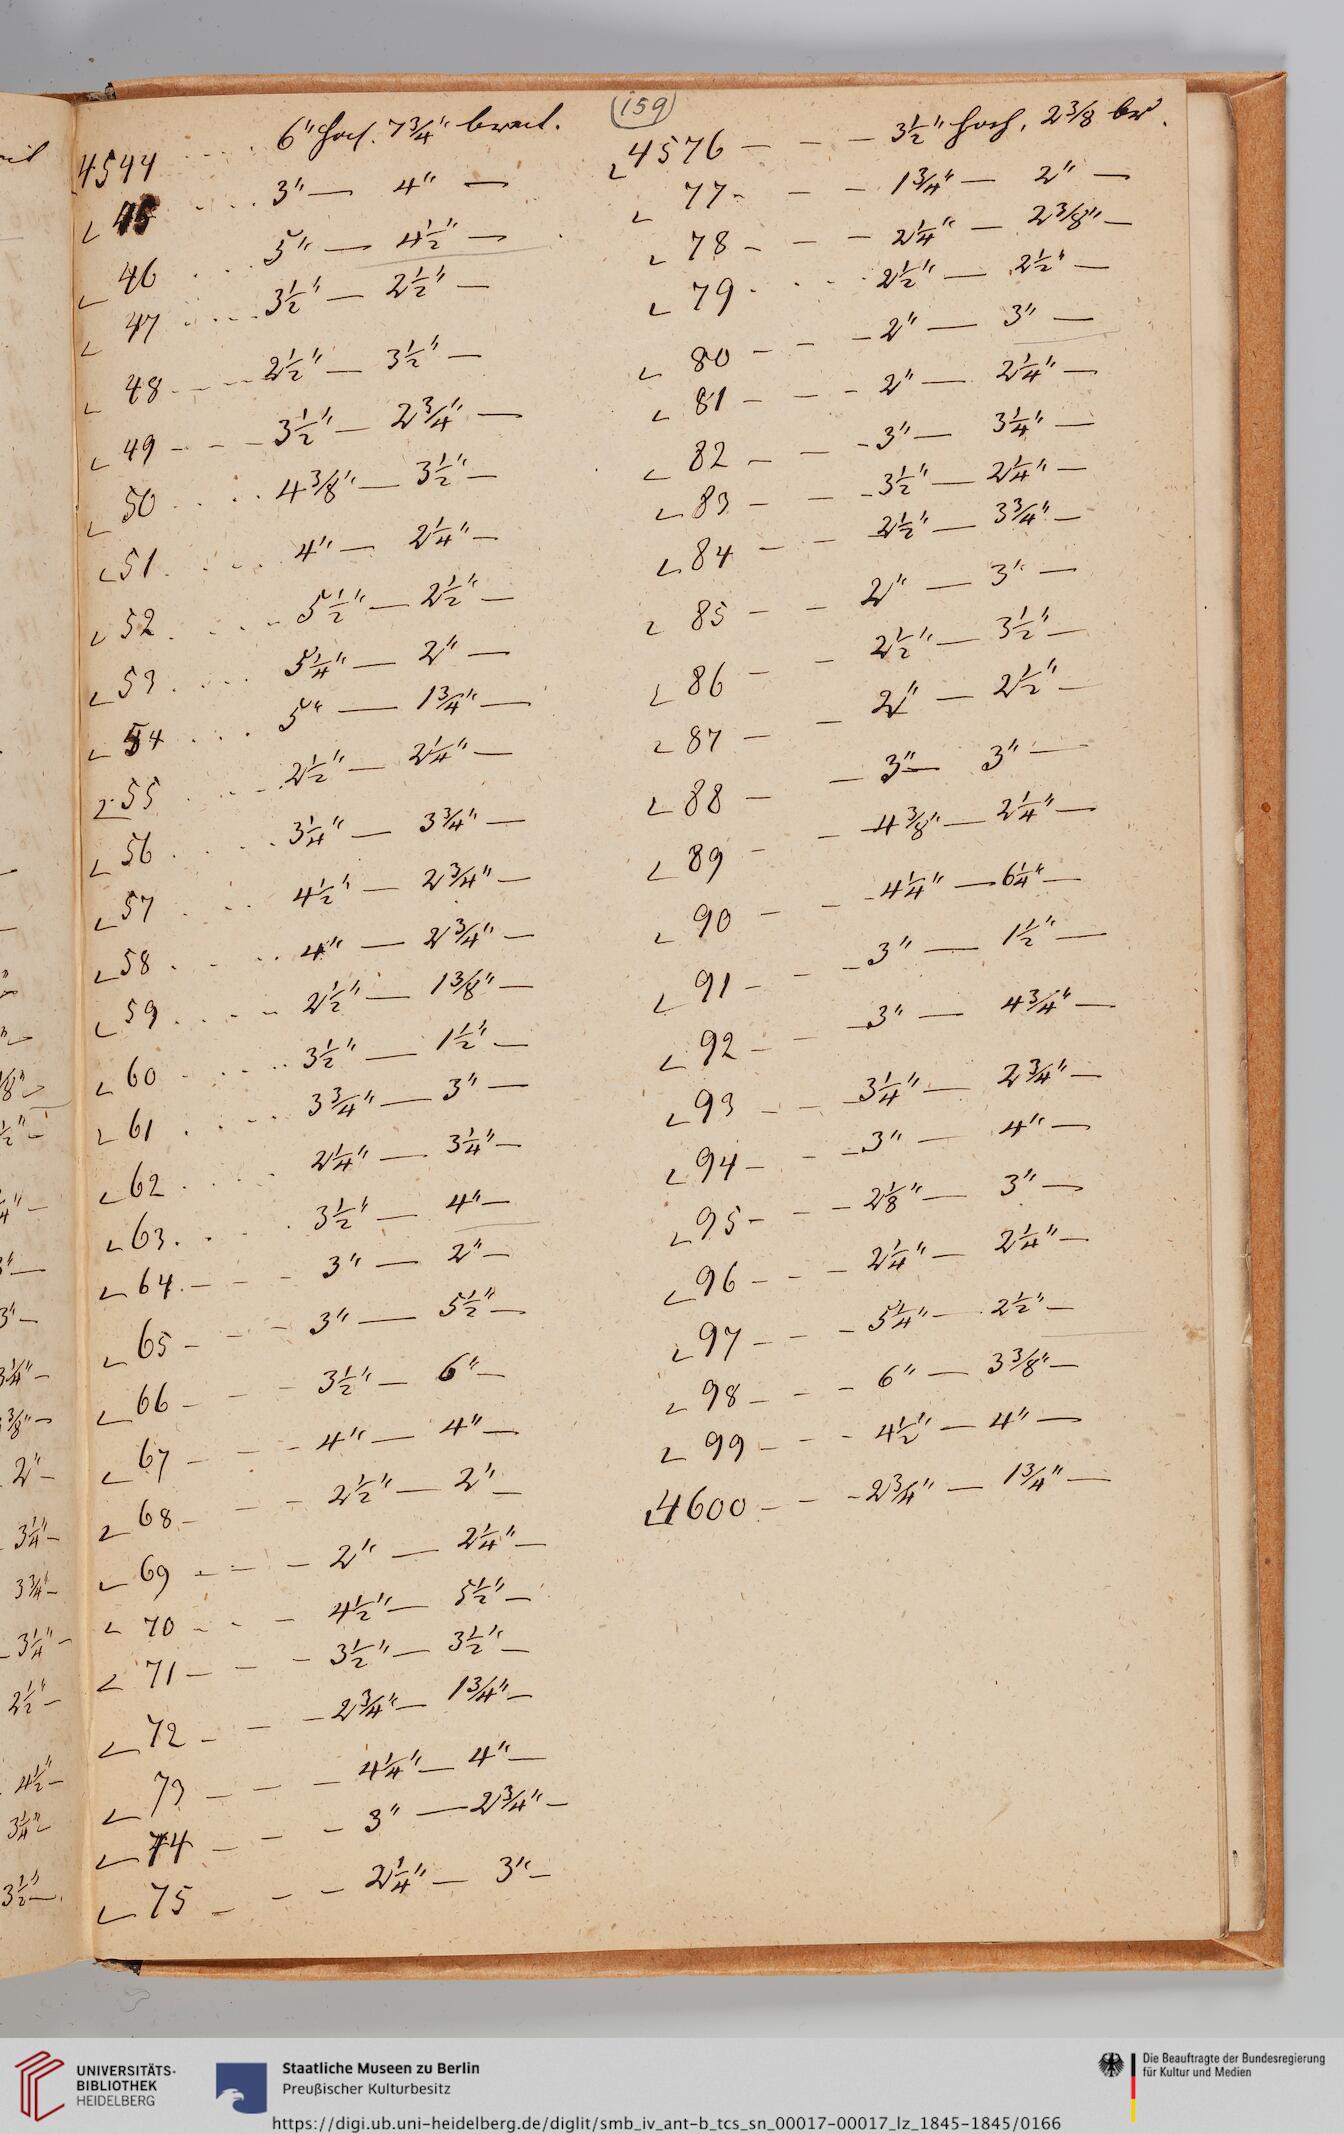 159
4544 6" hoch. 7¾" breit.
45 3" — 4" —
46 5" — 4½" —
47 3½" — 2½" —
48 2½" — 3½" —
49 3½" — 2¾" —
50 4⅜" — 3½" —
51 4" — 2¼" —
52 5½" — 2½" —
53 5¼" — 2" —
54 5" — 1¾" —
55 2½" — 2¼" —
56 3¼" — 3¾" —
57 4½" — 2¾" —
58 4" — 2¾" —
59 2½" — 1⅜" —
60 3½" — 1½" —
61 3¾" — 3" —
62 2¼" — 3¼" —
63 3½" — 4" —
64 3" — 2" —
65 3" — 5½" —
66 3½" — 6" —
67 4" — 4" —
68 2½" — 2" —
69 2" — 2¼" —
70 4½" — 5½" —
71 3½" — 3½" —
72 2¾" — 1¾" —
73 4¼" — 4" —
74 3" — 2¾" —
75 2¼" — 3" —
4576 3½" hoch, 2⅜ br.
77 1¾" — 2" —
78 2¼" — 2⅜" —
79 2½" — 2½" —
80 2" — 3" —
81 2" — 2¼" —
82 3" — 3¼" —
83 3½" — 2¼" —
84 2½" — 3¾" —
85 2" — 3" —
86 2½" — 3½" —
87 2" — 2½" —
88 3" — 3" —
89 4⅜" — 2¼" —
90 4¼" — 6¼" —
91 3" — 1½" —
92 3" — 4¾" —
93 3¼" — 2¾" —
94 3" — 4" —
95 2⅛" — 3" —
96 2¼" — 2¼" —
97 5¼" — 2½" —
98 6" — 3⅜" —
99 4½" — 4" —
4600 2¾" — 1¾" —
UNIVERSITÄTS-
BIBLIOTHEK
HEIDELBERG
Staatliche Museen zu Berlin
Preußischer Kulturbesitz
https://digi.ub.uni-heidelberg.de/diglit/smb_iv_ant-b_tcs_sn_00017-00017_lz_1845-1845/0166
Die Beauftragte der Bundesregierung
für Kultur und Medien